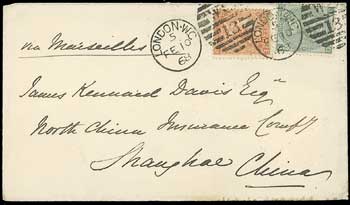 via Marseilles
LONDON·W.C
5
FE 10
68
13
LONDON·W.C
13
James Kennard Davis Esqre
North China Insurance Compy
Shanghae
China